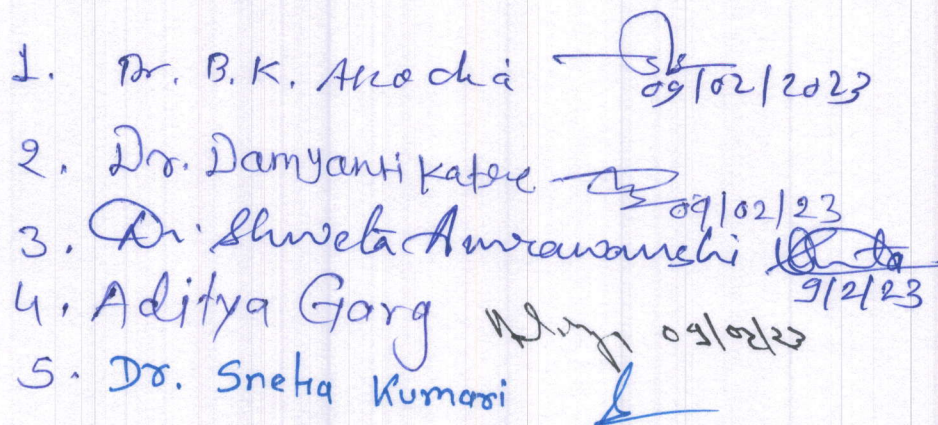 1. Dr. B.K. Akodia 09/02/2023
2. Dr. Damyanti Katere 09/02/23
3. Dr. Shweta Amrawanshi 9/2/23
4. Aditya Garg 09/02/23
5. Dr. Sneha Kumari